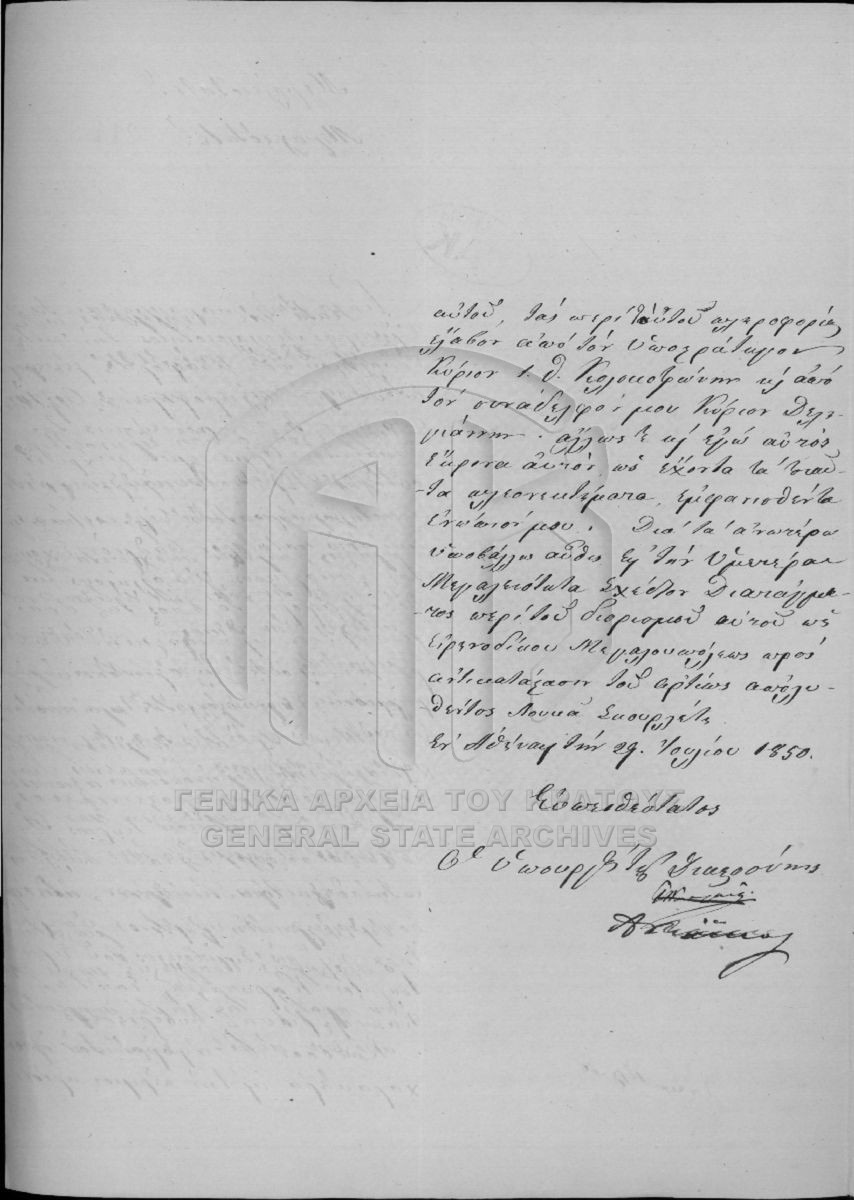 αὐτοῦ, τὰς περὶ αὐτοῦ πληροφορίας
ἔλαβον ἀπὸ τὸν ὑποστράτηγον
Κύριον Ι. Θ. Κολοκοτρώνην κỳ ἀπὸ
τὸν συνάδελφόν μου Κύριον Δελη-
γιάννην. ἄλλως τε κỳ ἐγὼ αὐτὸς
ἔκρινα αὐτὸν ὡς ἔχοντα τὰ τοιαῦ-
-τα πλεονεκτήματα, ἐμφανισθέντα
ἐνώπιόν μου. Διὰ τὰ ἀνωτέρω
ὑποβάλλω αὖθις εἰς τὴν Ὑμετέραν
Μεγαλειότητα Σχέδιον Διατάγμα-
-τος περὶ τοῦ διορισμοῦ αὐτοῦ ὡς
Εἰρηνοδίκου Μεγαλουπόλεως πρὸς
ἀντικατάστασιν τοῦ ἀρτίως ἀπολυ-
θέντος Λουκᾶ Σκουρλέτη.
Ἐν Ἀθήναις τὴν 29. Ἰουλίου 1850.
Εὐπειθέστατος
Ὁ ὑπουργὸς τῆς Δικαιοσύνης
ΓΕΝΙΚΑ ΑΡΧΕΙΑ ΤΟΥ ΚΡΑΤΟΥΣ
GENERAL STATE ARCHIVES